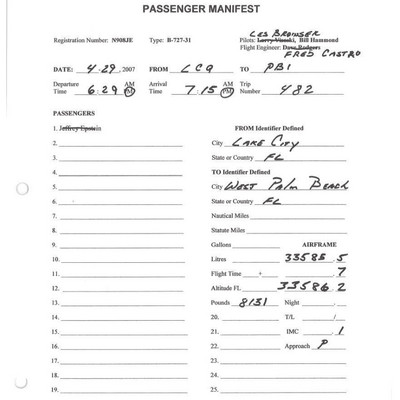 PASSENGER MANIFEST
LES BRONSER
Registration Number: N908JE Type: B-727-31 Pilots: Larry Visoski, Bill Hammond
Flight Engineer: Dave Rodgers
FRED CASTRO
DATE: 4-29, 2007 FROM LCQ TO PBI
Departure Time 6:29 AM PM Arrival Time 7:15 AM PM Trip Number 482
PASSENGERS
1. Jeffrey Epstein FROM Identifier Defined
2. City LAKE CITY
3. State or Country FL
4. TO Identifier Defined
5. City WEST PALM BEACH
6. State or Country FL
7. Nautical Miles
8. Statute Miles
9. Gallons AIRFRAME
10. Litres 33585.5
11. Flight Time + .7
12. Altitude FL 33586.2
13. Pounds 8131 Night
14. 20. T/L /
15. 21. IMC .1
16. 22. Approach P
17. 23.
18. 24.
19. 25.